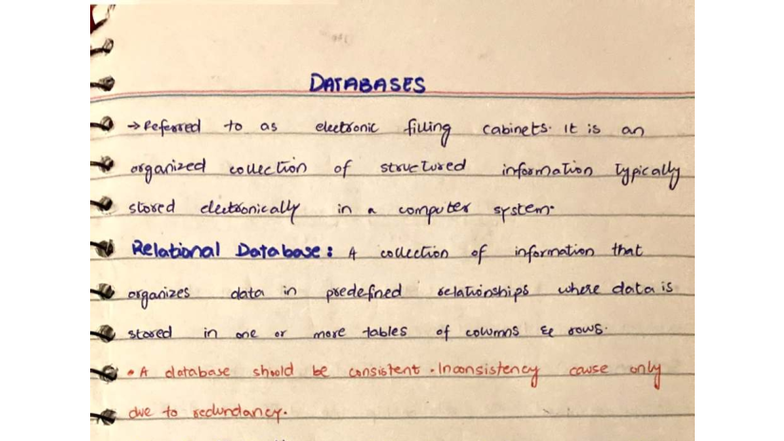 DATABASES
→ Referred to as electronic filling cabinets. It is an
organized collection of structured information typically
stored electronically in a computer system.
Relational Database: A collection of information that
organizes data in predefined relationships where data is
stored in one or more tables of columns & rows.
• A database should be consistent. Inconsistency cause only
due to redundancy.